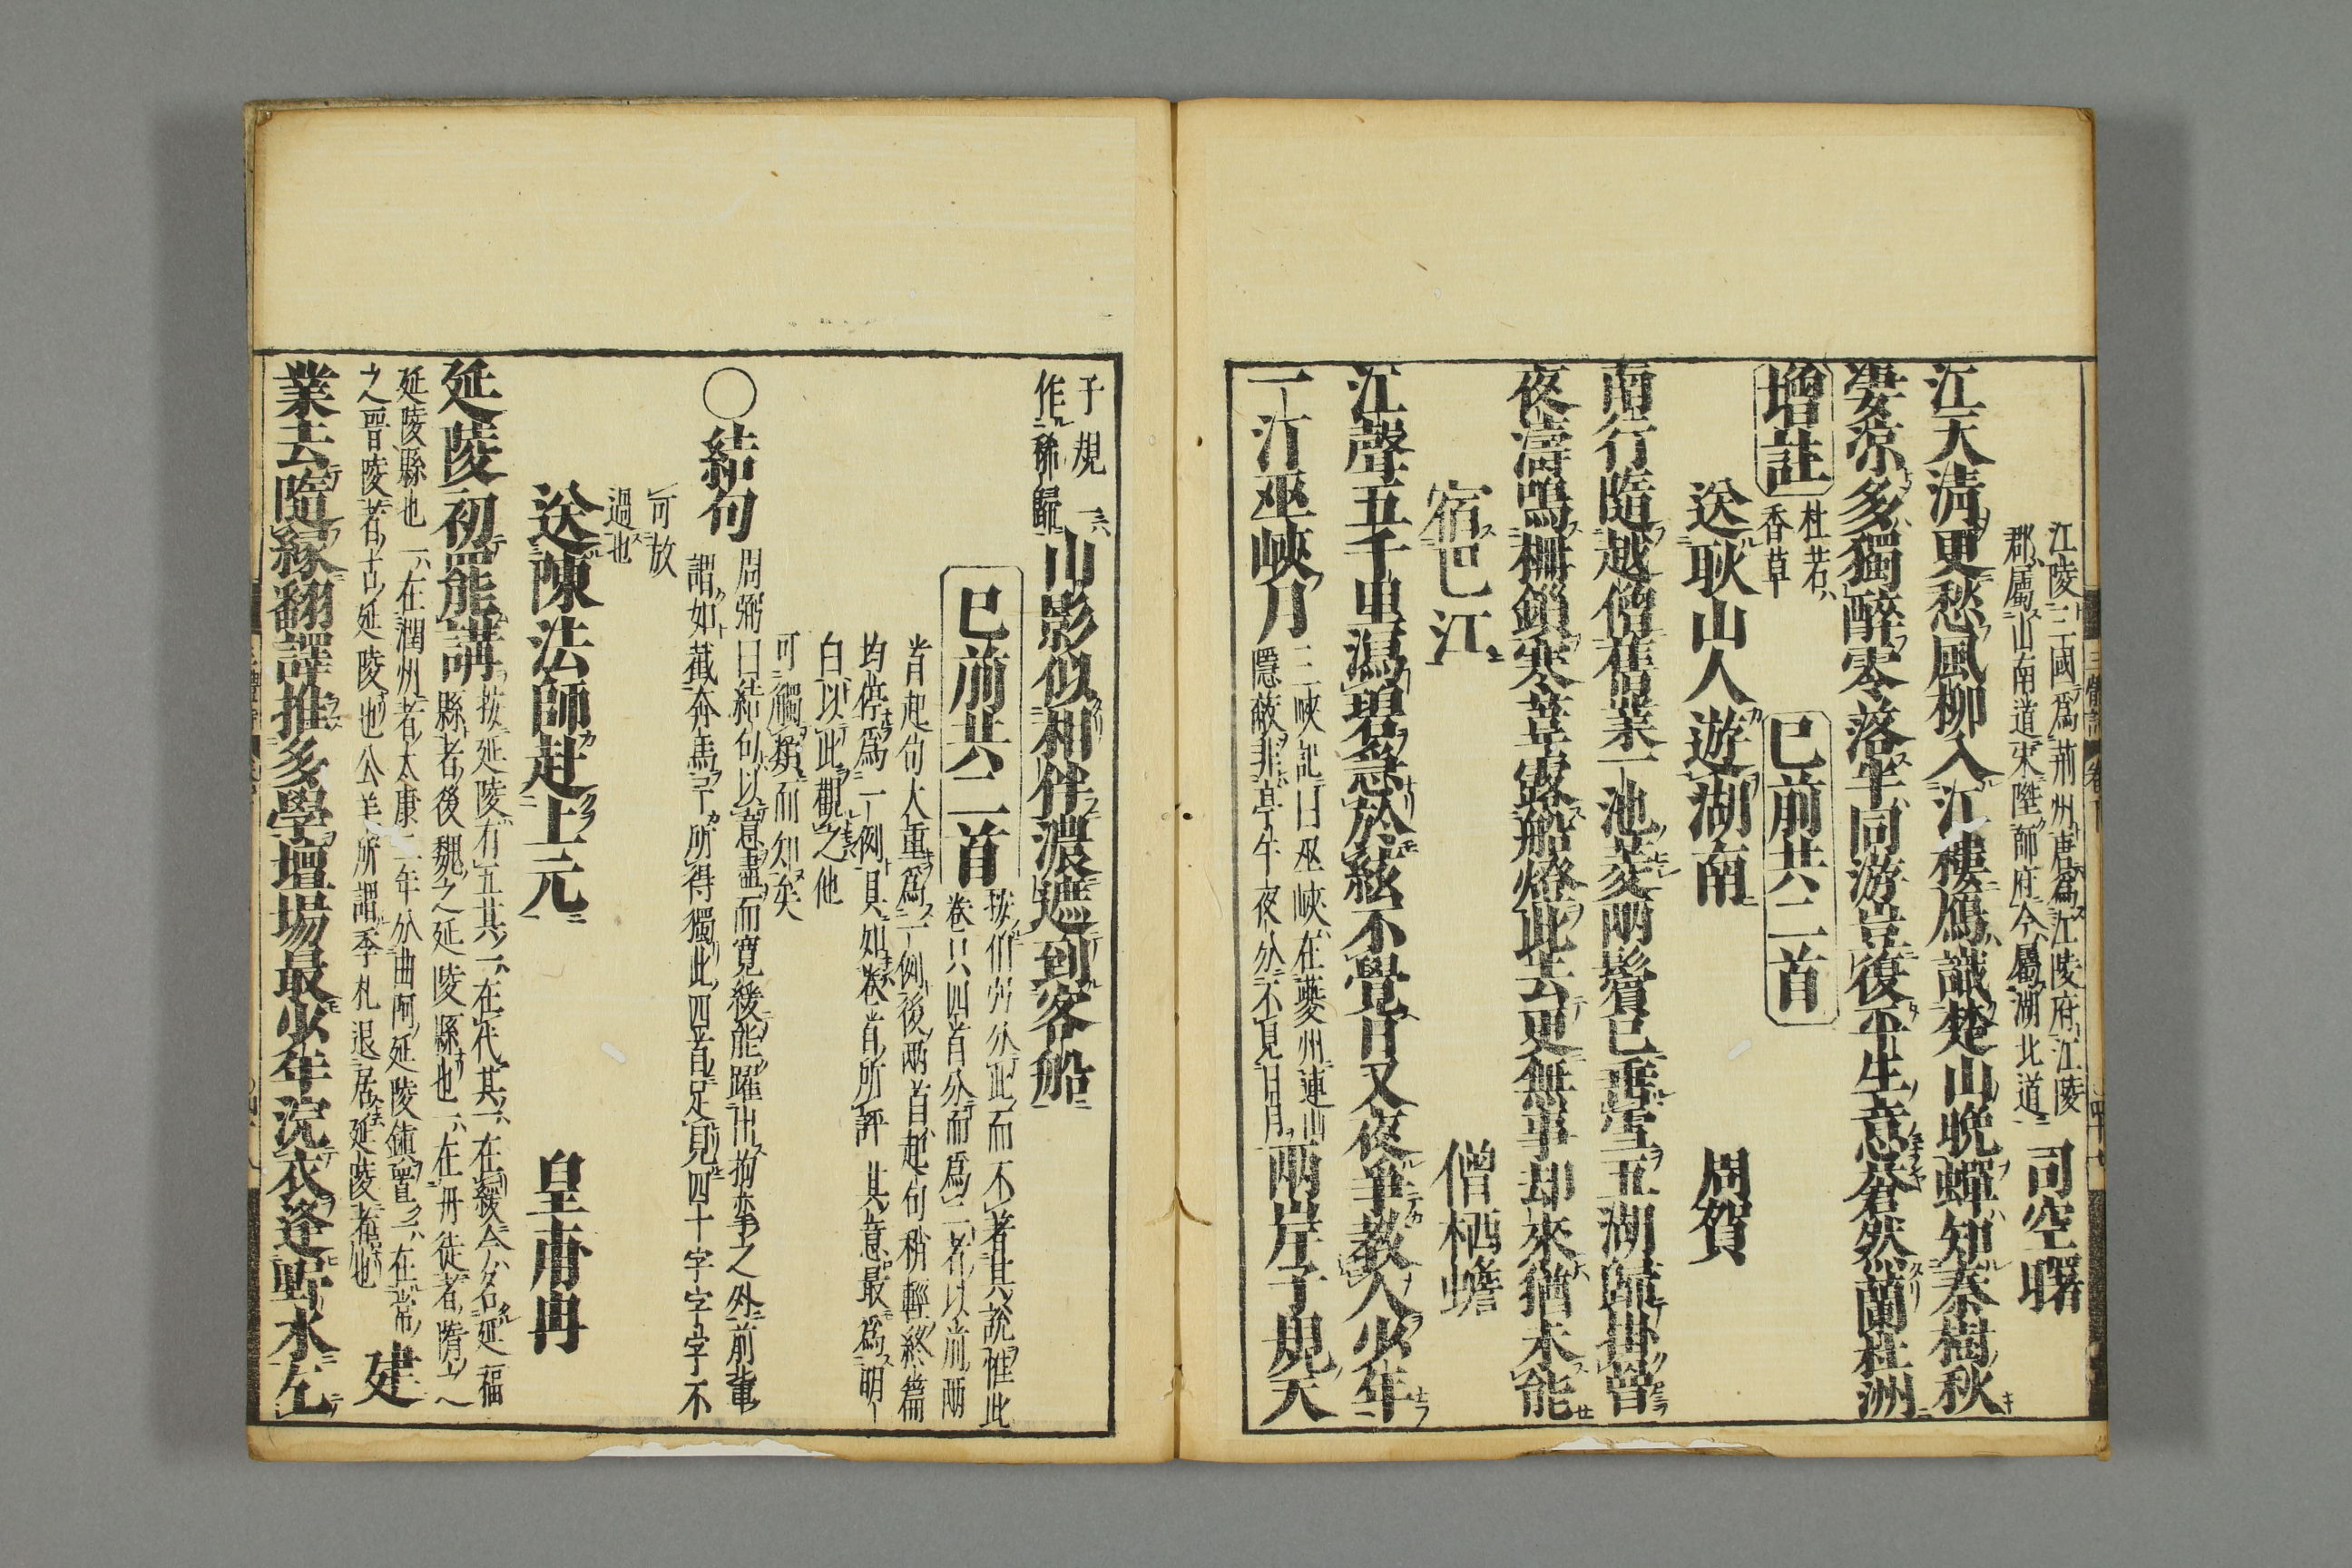 江陵三國爲荊州唐爲江陵府江陵
郡屬山南道東陞帥府今屬湖北道
司空曙
江天淸更愁風柳入江樓鴈識楚山晩蟬知秦樹秋
凄涼多獨醉零落半同游豈復平生意蒼然蘭杜洲
增註
杜若
香草
已前共二首
送耿山人遊湖南
周賀
南行隨越僧舊業一池菱兩鬢已垂雪五湖歸掛罾
夜濤鳴柵鎖寒葦露船燈此去更無事却來猶未能
宿巴江
僧栖蟾
江聲五千里瀉碧急於絃不覺日又夜爭教人少年
一汀巫峽月
三峽記曰巫峽在夔州連山
隱蔽非亭午夜分不見日月
兩岸子規天
子規一
作秭歸
山影似相伴濃遮到客船
已前共二首
按伯弜分此而不著其說惟此
卷只四首分而爲二者以前兩
首起句大重爲一例後兩首起句稍輕終篇
均停爲一例具如卷首所評其意最爲明
白以此觀之他
可觸類而知矣
○結句
周弼曰結句以意盡而寬緩能躍出拘攣之外前輩
謂如截奔馬予所得獨此四首足見四十字字字不
可放
過也
送陳法師赴上元
皇甫冉
延陵初罷講
按延陵有五其一在代其一在綏今分名延福
縣者後魏之延陵縣也一在丹徒者隋之
延陵縣也一在潤州者太康二年分曲阿延陵鎭置之一在常
之晉陵者古延陵也公羊所謂季札退居延陵者也
建
業去隨緣翻譯推多學壇場最少年浣衣逢野水乞